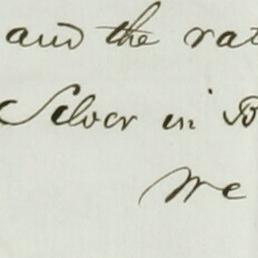 and the rat
Silver in B
We